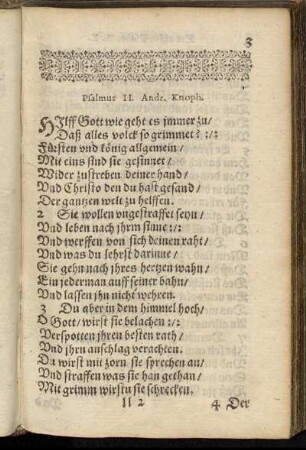 3
Psalmus II. Andr. Knoph.
HIlff Gott wie geht es jmmer zu/
Daß alles volck so grimmet? :/:
Fürsten vnd könig allgemein/
Mit eins sind sie gesinnet/
Wider zustreben deiner hand/
Vnd Christo den du hast gesand/
Der gantzen welt zu helffen.
2 Sie wollen vngestraffet seyn/
Vnd leben nach jhrm sinne :/:
Vnd werffen von sich deinen raht/
Vnd was du lehrst darinne/
Sie gehn nach jhres hertzen wahn/
Ein jederman auff seiner bahn/
Vnd lassen jhn nicht wehren.
3 Du aber in dem himmel hoch/
O Gott/ wirst sie belachen :/:
Verspotten jhren besten rath/
Vnd jhrn anschlag verachten.
Du wirst mit zorn sie sprechen an/
Vnd straffen was sie han gethan/
Mit grimm wirstu sie schrecken.
II 2 4. Der